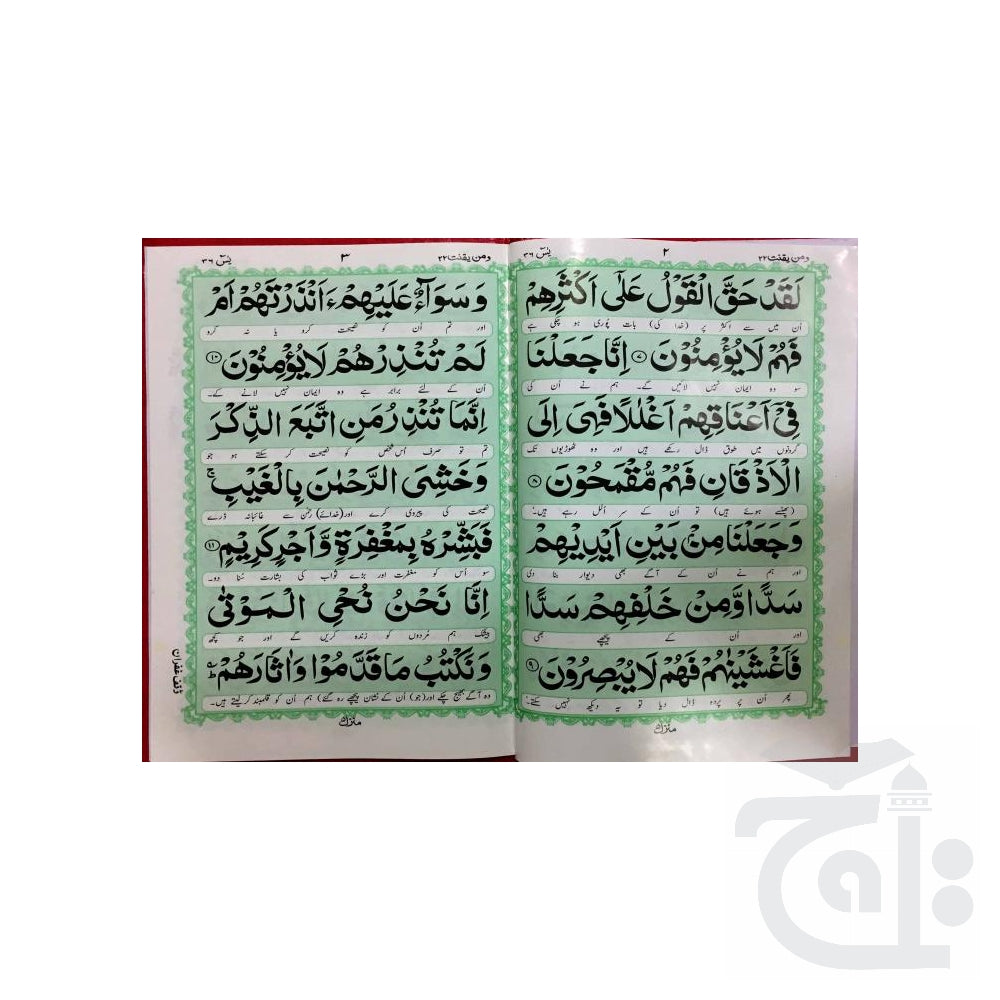 ومن یقنت ۲۲
۲
یٰسٓ ۳۶
لَقَدْ حَقَّ الْقَوْلُ عَلٰٓى اَكْثَرِهِمْ
اُن میں سے اکثر پر (خدا کی) بات پوری ہو چکی ہے
فَهُمْ لَا يُؤْمِنُوْنَ ۷ اِنَّا جَعَلْنَا
سو وہ ایمان نہیں لائیں گے۔ ہم نے اُن کی
فِىْٓ اَعْنَاقِهِمْ اَغْلٰلًا فَهِىَ اِلَى
گردنوں میں طوق ڈال رکھے ہیں اور وہ ٹھوڑیوں تک
الْاَذْقَانِ فَهُمْ مُّقْمَحُوْنَ ۸
(پھنسے ہوئے ہیں) تو اُن کے سر اُلل رہے ہیں۔
وَجَعَلْنَا مِنْۢ بَيْنِ اَيْدِيْهِمْ
اور ہم نے اُن کے آگے بھی دیوار بنا دی
سَدًّا وَّمِنْ خَلْفِهِمْ سَدًّا
اور اُن کے پیچھے بھی
فَاَغْشَيْنٰهُمْ فَهُمْ لَا يُبْصِرُوْنَ ۹
پھر اُن پر پردہ ڈال دیا تو یہ دیکھ نہیں سکتے۔
ومن یقنت ۲۲
۳
یٰسٓ ۳۶
وَسَوَآءٌ عَلَيْهِمْ ءَاَنْذَرْتَهُمْ اَمْ
اور تم اُن کو نصیحت کرو یا نہ کرو
لَمْ تُنْذِرْهُمْ لَا يُؤْمِنُوْنَ ۱۰
اُن کے لئے برابر ہے وہ ایمان نہیں لانے کے۔
اِنَّمَا تُنْذِرُ مَنِ اتَّبَعَ الذِّكْرَ
تم تو صرف اُس شخص کو نصیحت کر سکتے ہو جو
وَخَشِىَ الرَّحْمٰنَ بِالْغَيْبِ ۚ
نصیحت کی پیروی کرے اور (خدائے) رحمٰن سے غائبانہ ڈرے
فَبَشِّرْهُ بِمَغْفِرَةٍ وَّاَجْرٍ كَرِيْمٍ ۱۱
سو اُس کو مغفرت اور بڑے ثواب کی بشارت سُنا دو۔
اِنَّا نَحْنُ نُحْىِ الْمَوْتٰى
بیشک ہم مُردوں کو زندہ کریں گے اور جو کچھ
وَنَكْتُبُ مَا قَدَّمُوْا وَاٰثَارَهُمْ ؕ
وہ آگے بھیج چکے اور (جو) اُن کے نشان پیچھے رہ گئے) ہم اُن کو قلمبند کر لیتے ہیں۔
وقف غفران